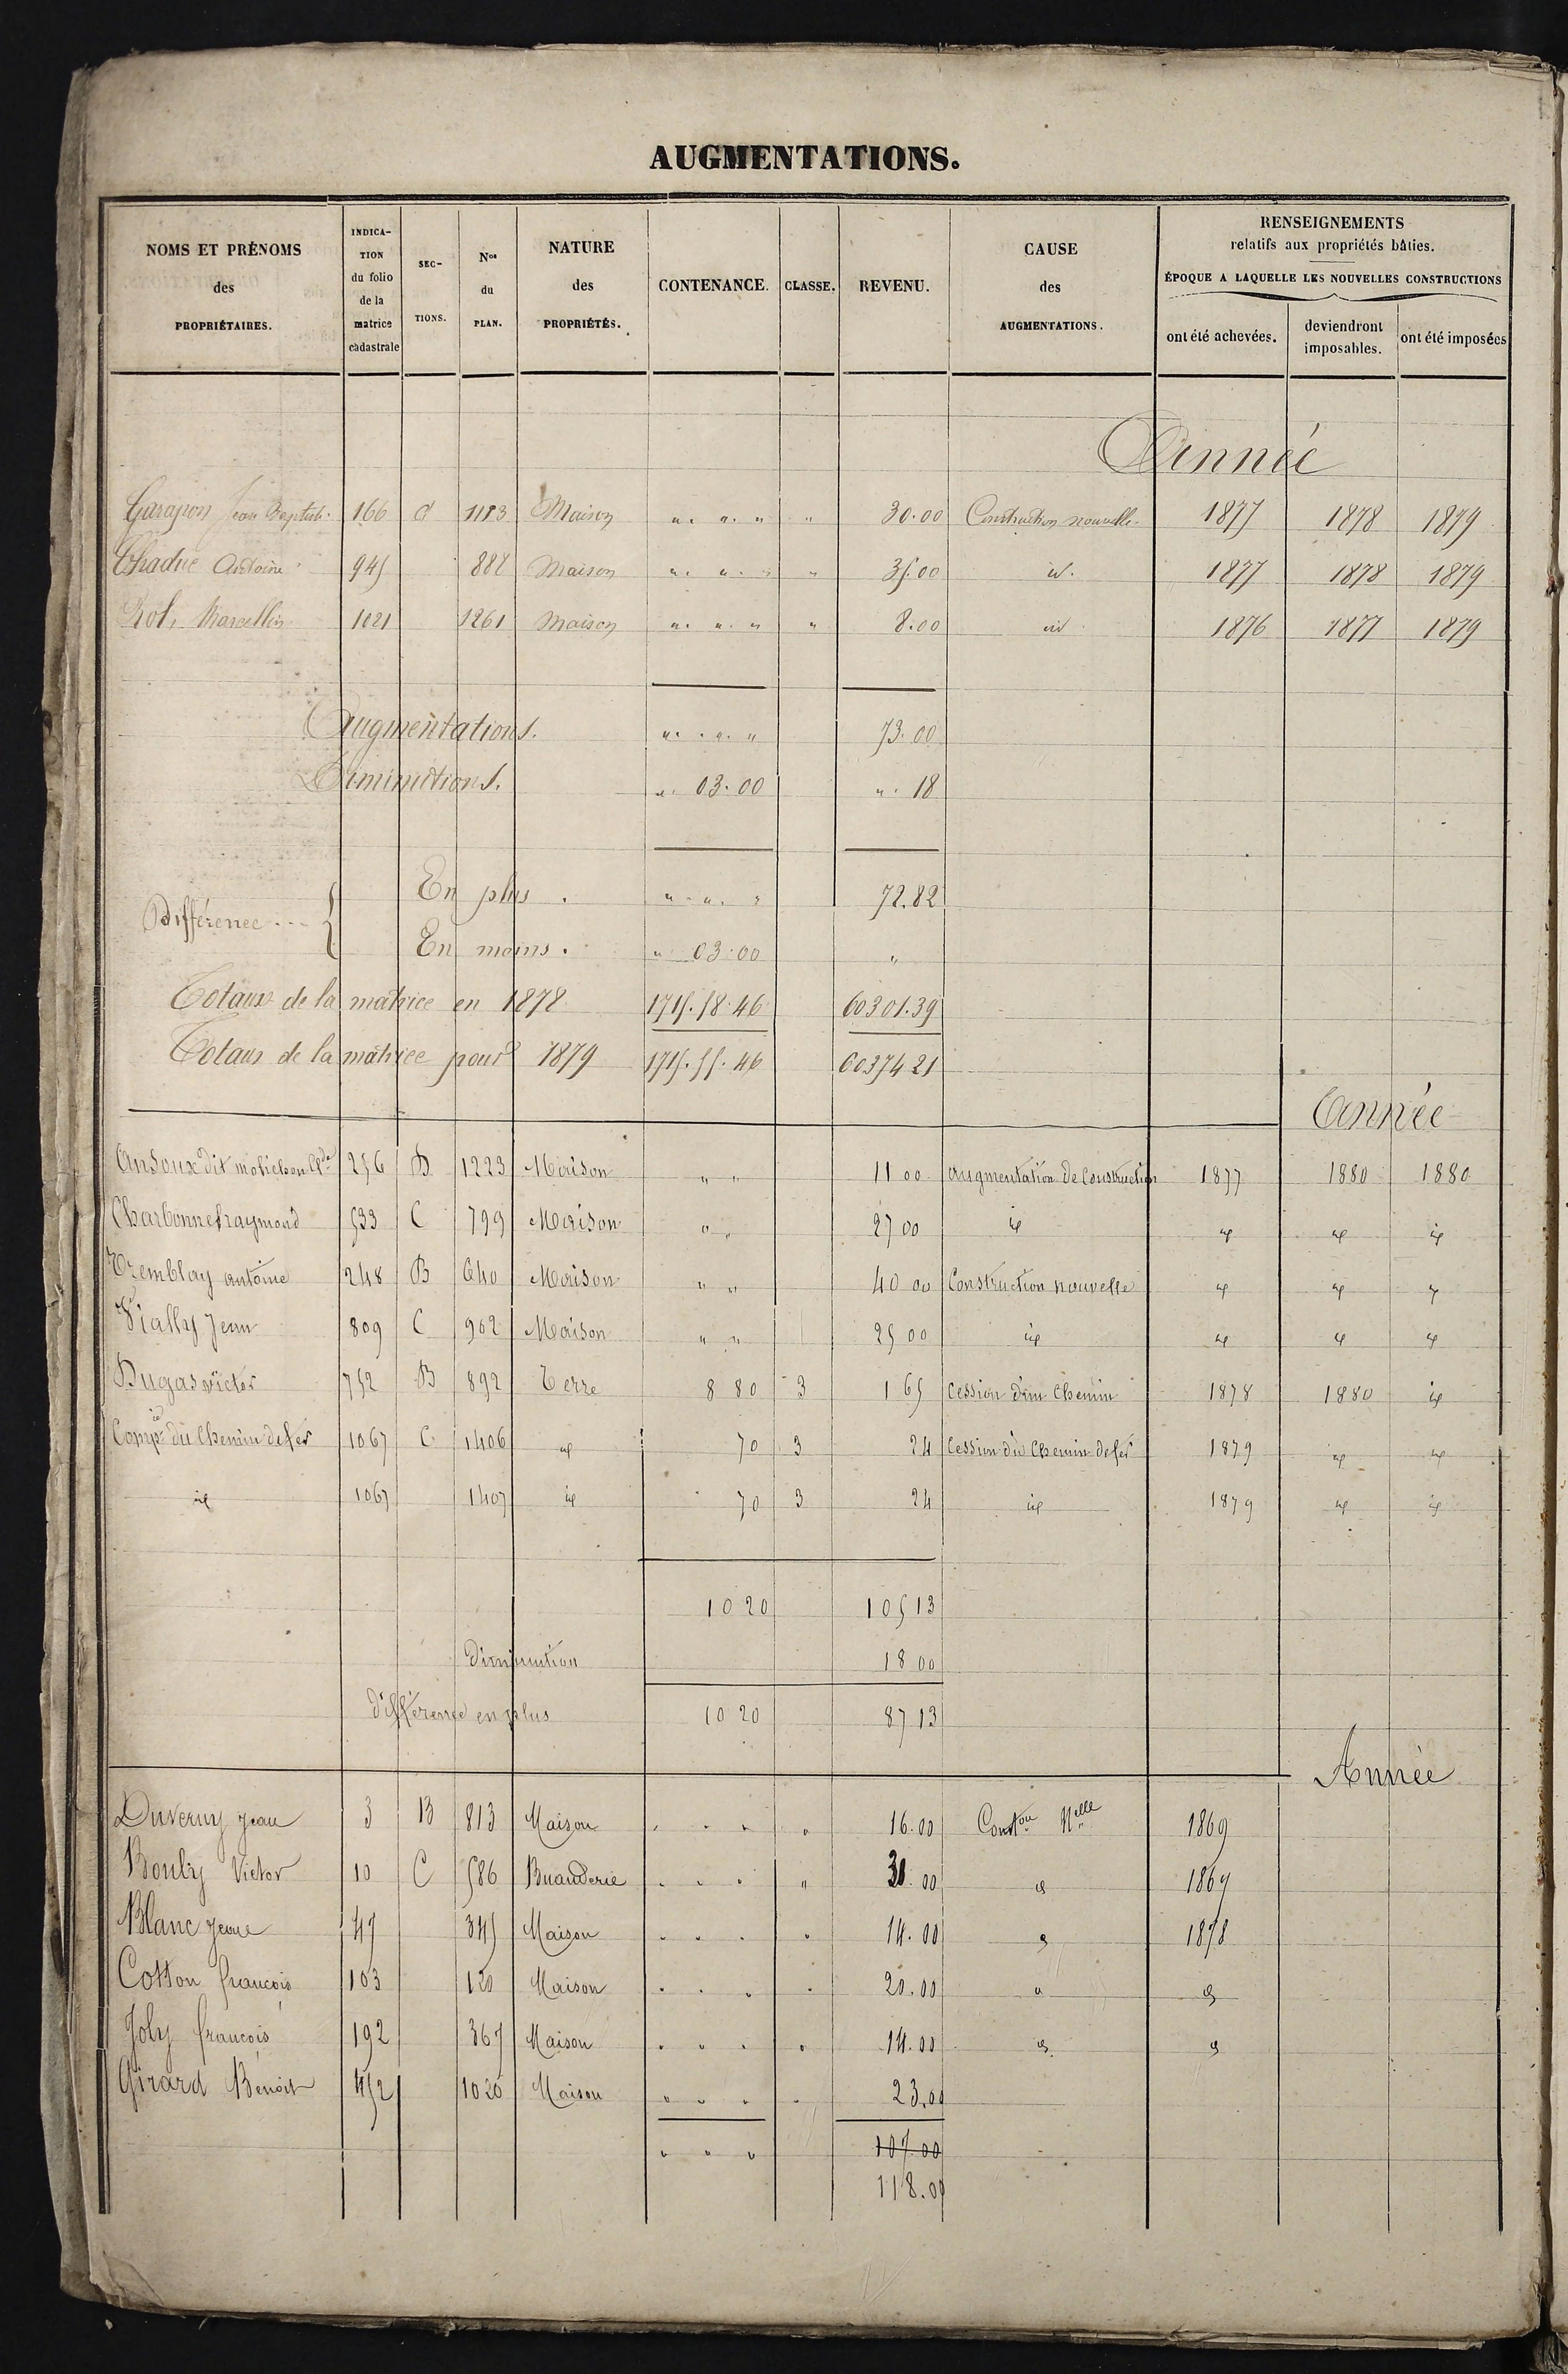 AUGMENTATIONS.
NOMS ET PRÉNOMS des PROPRIÉTAIRES. | INDICATION du folio de la matrice cadastrale | SECTIONS. | Nos du PLAN. | NATURE des PROPRIÉTÉS. | CONTENANCE. | CLASSE. | REVENU. | CAUSE des AUGMENTATIONS. | RENSEIGNEMENTS relatifs aux propriétés bâties.
ÉPOQUE A LAQUELLE LES NOUVELLES CONSTRUCTIONS
ont été achevées. | deviendront imposables. | ont été imposées
Année
Garapon Jean Baptiste 166 C 1183 Maison " " " " 30.00 Construction nouvelle 1877 1878 1879
Chaduc Antoine 945 882 Maison " " " " 35.00 id. 1877 1878 1879
Marcellin 1021 1261 Maison " " " " 8.00 id 1876 1877 1879
Augmentations. " " " 73.00
Diminutions. " 03.00 " 18
Différence En plus. " " " 72.82
En moins. " 03.00 "
Totaux de la matrice en 1878 1715.58.46 60301.39
Totaux de la matrice pour 1879 1715.55.46 60374 21
Année
dit 256 B 1223 Maison " " 11 00 augmentation de Construction 1877 1880 1880
Charbonnet raymond 533 C 799 Maison " " 27 00 id id id id
Tremblay antoine 248 B 640 Maison " " 40 00 Construction nouvelle id id id
Vially Jean 809 C 902 Maison " " 25 00 id id id id
Dugas victor 752 B 892 Terre 8 80 3 1 65 Cession d'un Chemin 1878 1880 id
Compie du Chemin de fer 1067 C 1406 id 70 3 24 Cession du Chemin de fer 1879 id id
id 1067 1407 id 70 3 24 id 1879 id id
10 20 105 13
diminution 18 00
différence en plus 10 20 87 13
Année
Duverny Jean 3 B 813 Maison " " " " 16.00 Conston Nelle 1869
Bouly Victor 10 C 586 Buanderie " " " " 00 d 1869
Blanc 47 345 Maison " " " " 14.00 d 1878
Cotton françois 103 120 Maison " " " " 20.00 d d
Joly françois 192 367 Maison " " " " 14.00 d d
Girard Benoit 452 1020 Maison " " " " 23.00
" " " 107.00
118.00